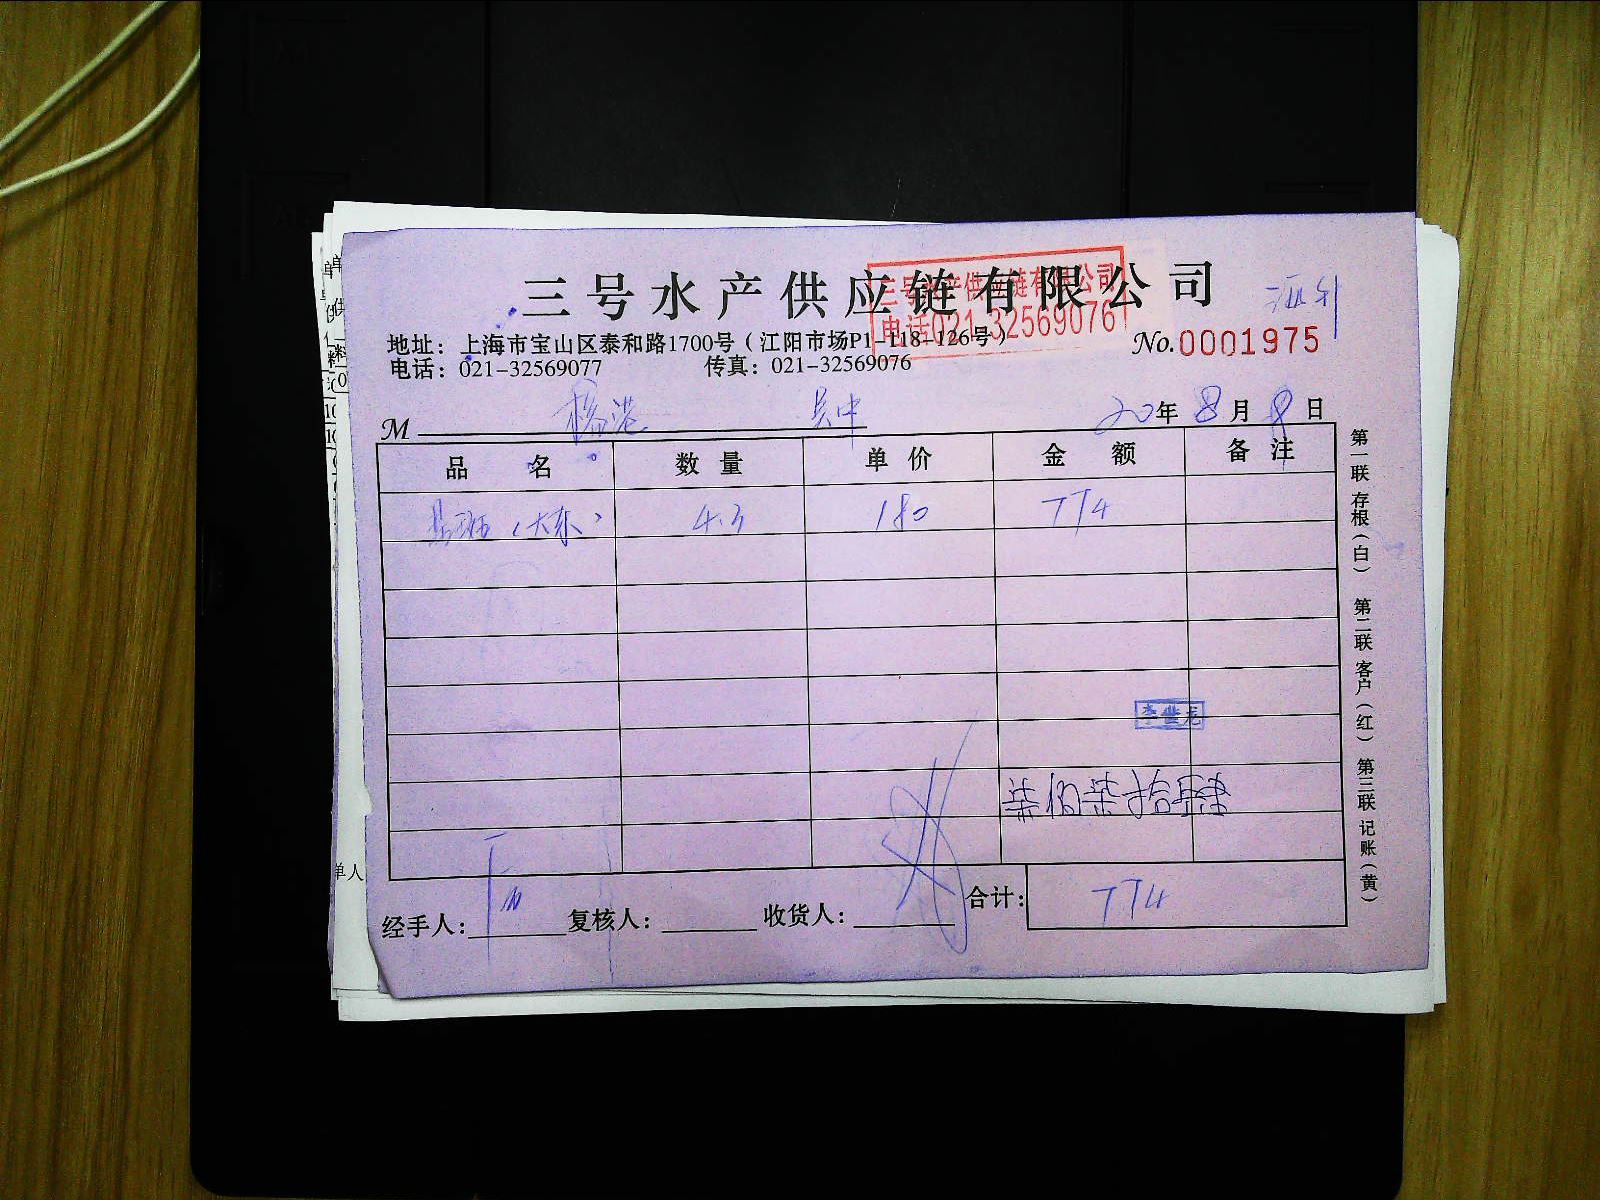 三号水产供应链有限公司
三号水产供应链有限公司
电话021-32569076
地址：上海市宝山区泰和路1700号（江阳市场P1-118-126号）
No.0001975
电话：021-32569077 传真：021-32569076
M 吴中 20年8月9日
品名 数量 单价 金额 备注
（大东） 4.3 180 774
李世龙
柒佰柒拾肆
经手人： 复核人： 收货人： 合计： 774
第一联 存根（白） 第二联 客户（红） 第三联 记账（黄）
单人